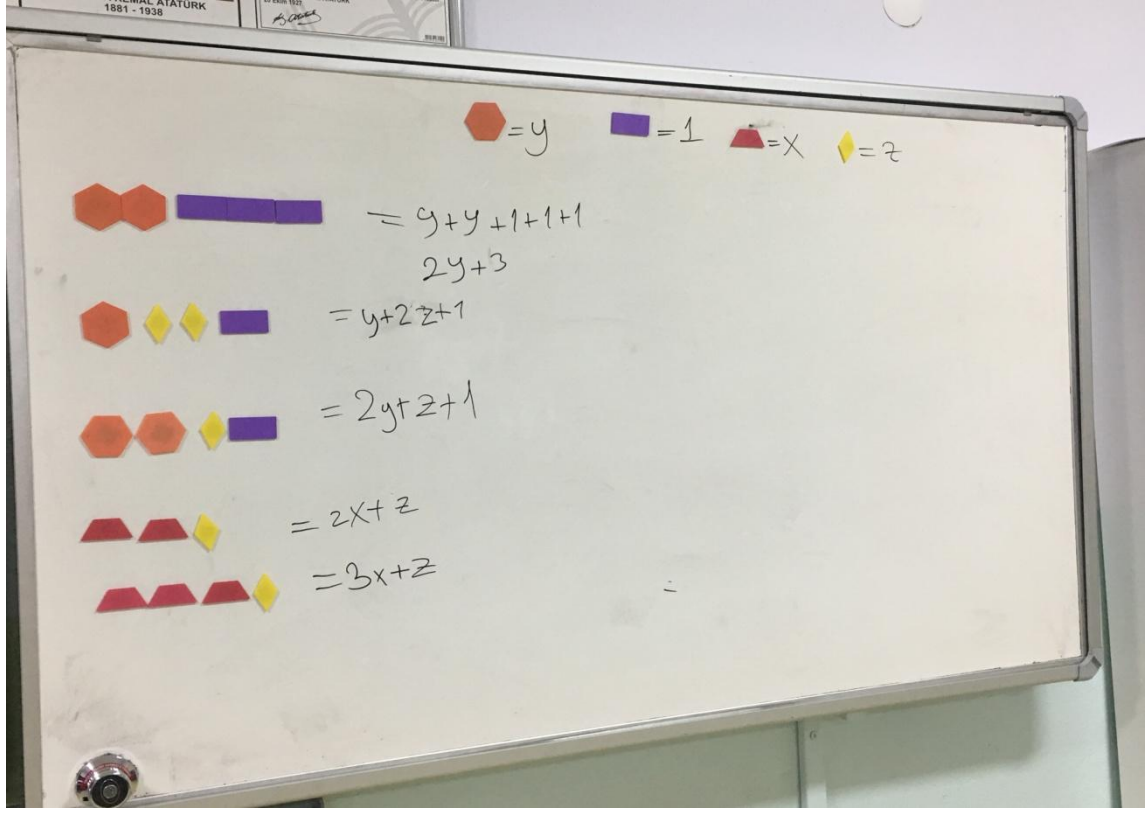 KEMAL ATATÜRK
1881 - 1938
=y =1 =x =z
= y+y+1+1+1
2y+3
= y+2z+1
= 2y+z+1
= 2x+z
=3x+z
=